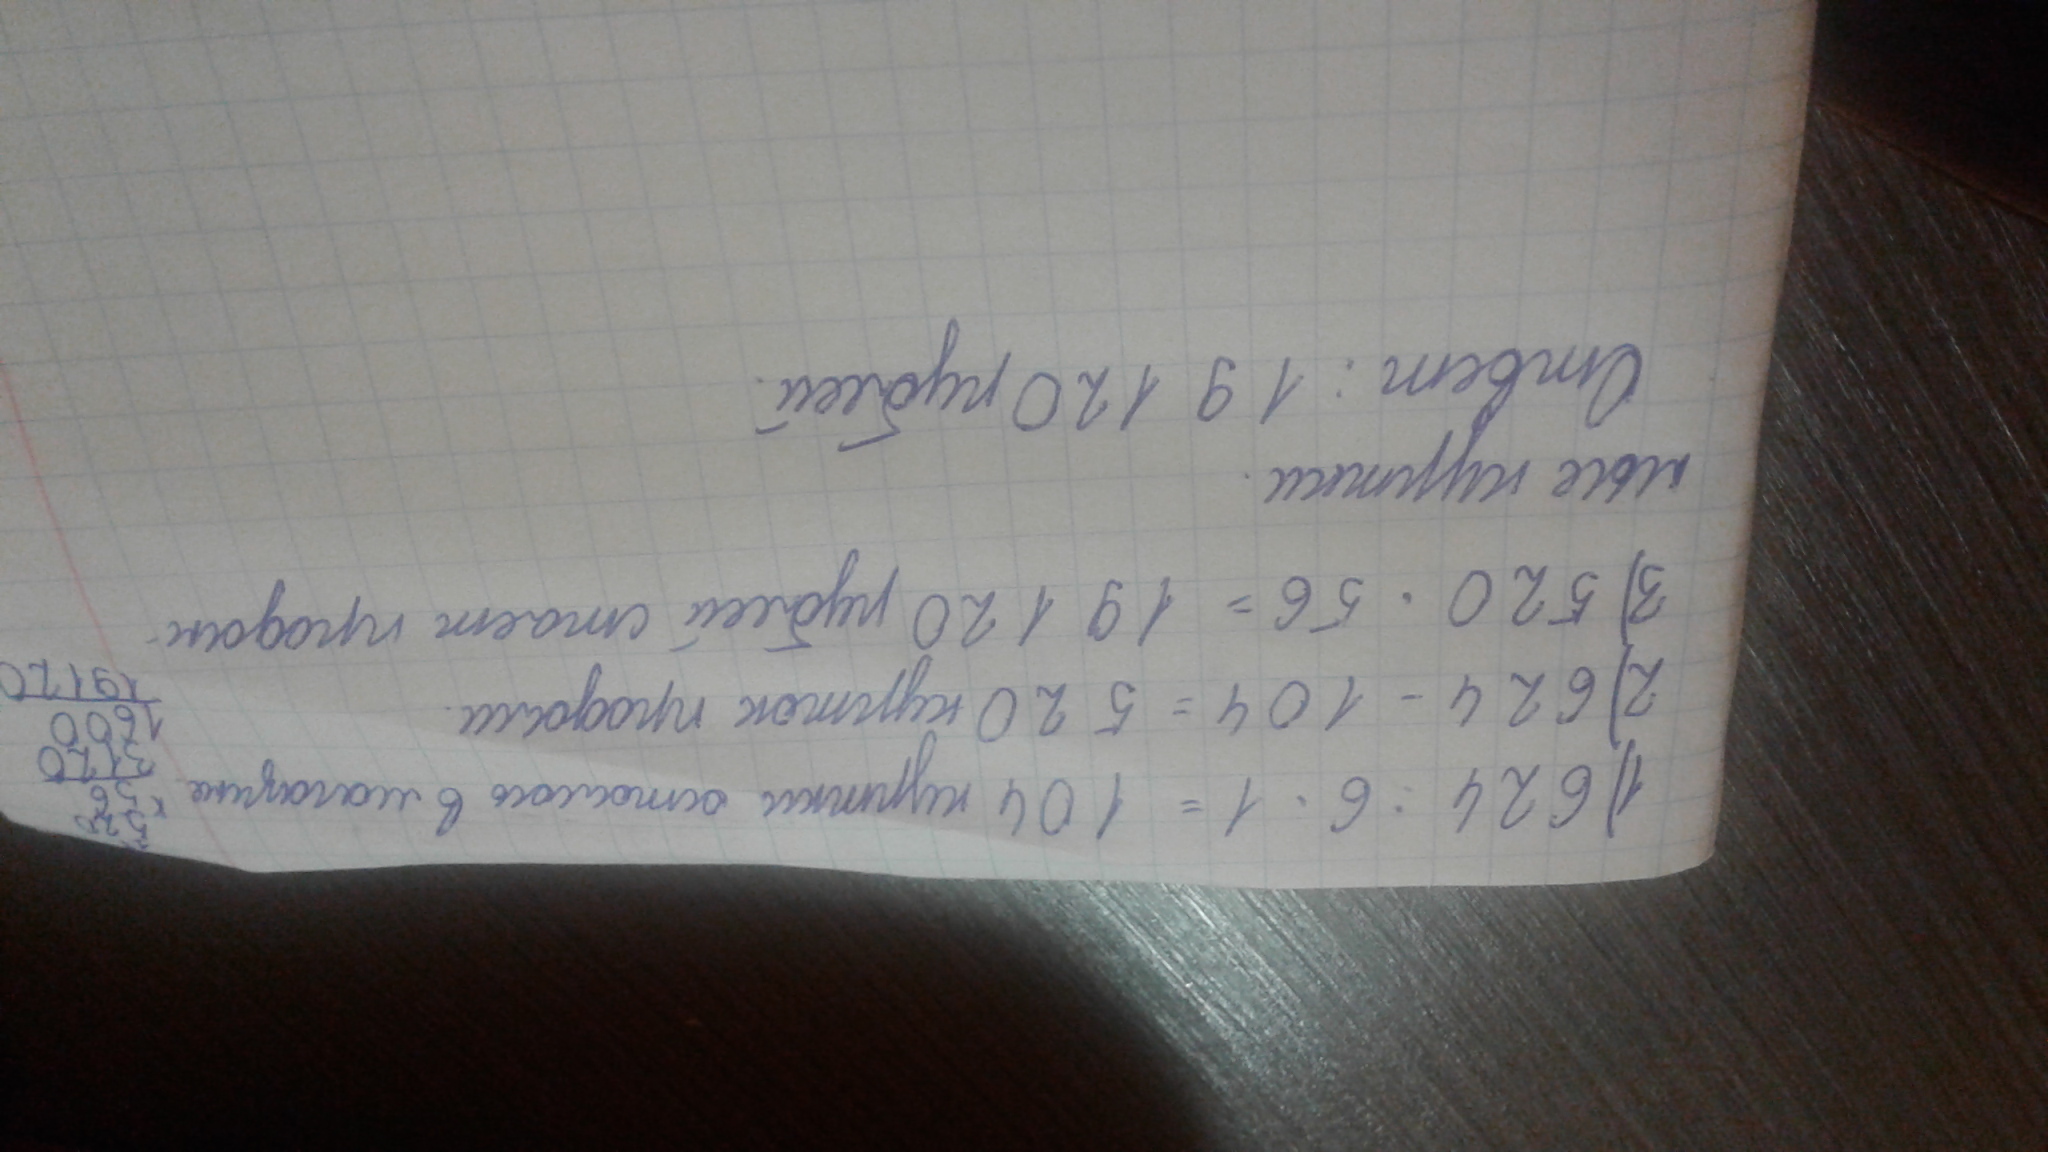 1) 624 : 6 · 1 = 104 куртки осталось в магазине
2) 624 - 104 = 520 курток продали.
3) 520 · 56 = 19 120 рублей стоят продан-
ные куртки.
Ответ: 19 120 рублей.
520
× 56
3120
1600
19120